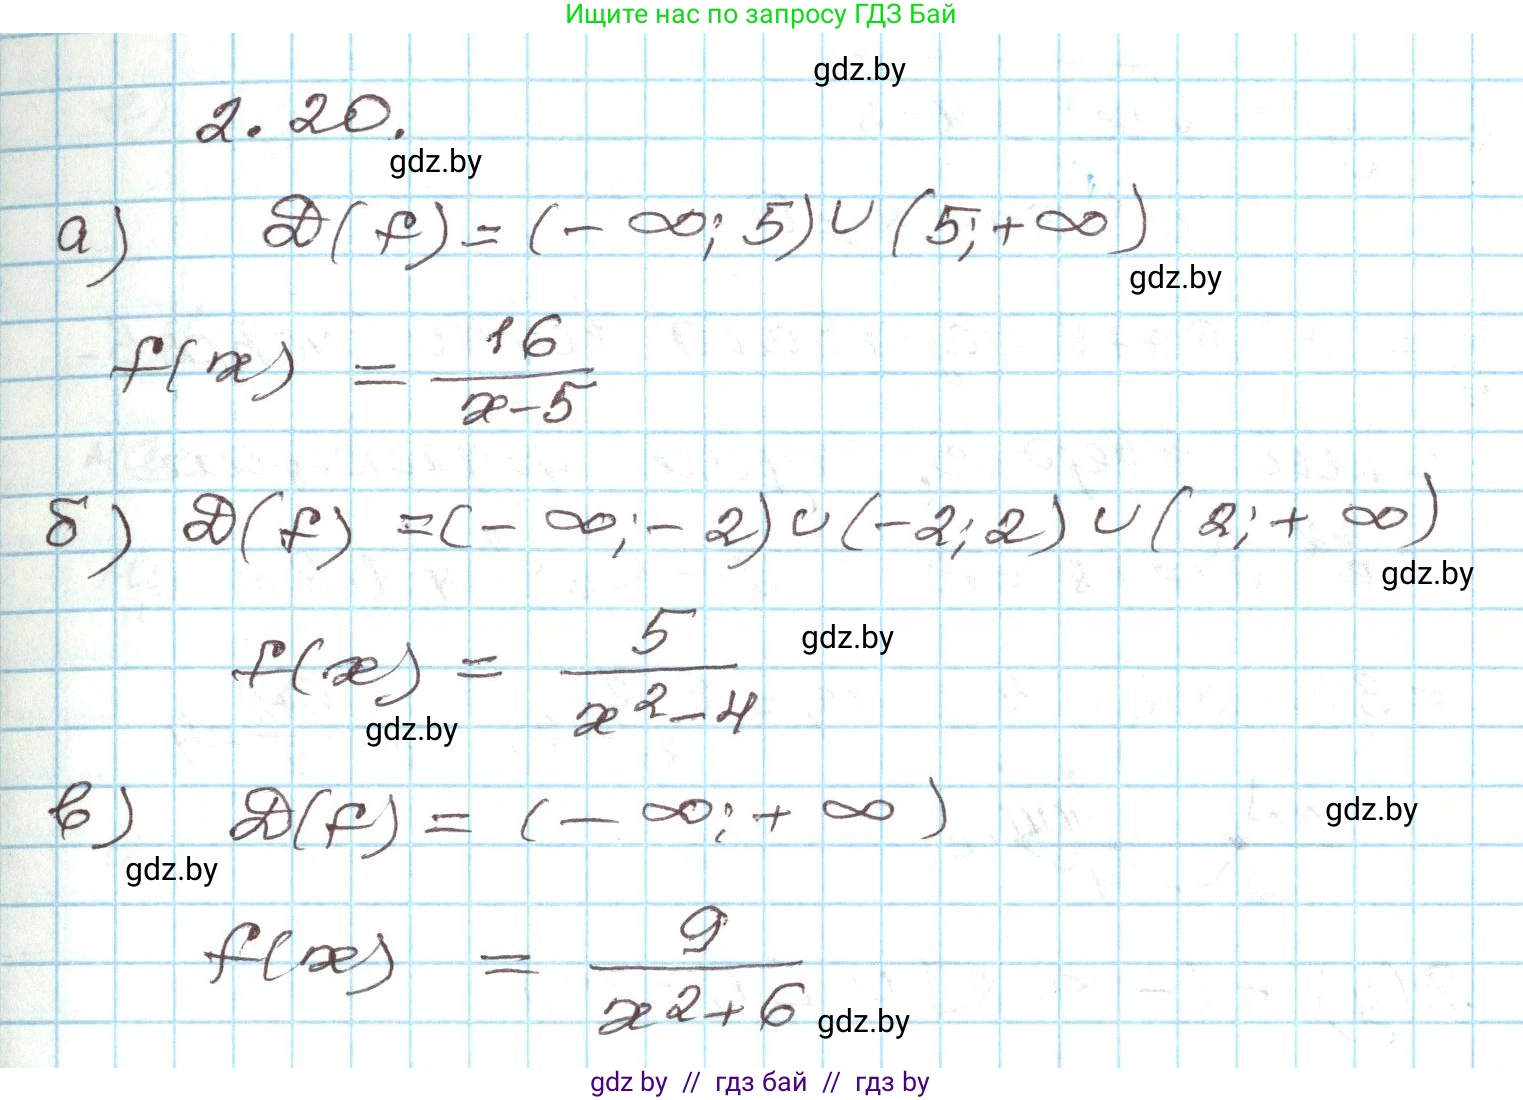 Ищите нас по запросу ГДЗ Бай
gdz.by
2.20.
gdz.by
а) D(f) = (- ∞; 5) ∪ (5; + ∞)
gdz.by
f(x) = 16/(x-5)
б) D(f) = (- ∞; - 2) ∪ (-2; 2) ∪ (2; + ∞)
gdz.by
f(x) = 5/(x²-4)
gdz.by
gdz.by
в) D(f) = (- ∞; + ∞)
gdz.by
gdz.by
f(x) = 9/(x²+6)
gdz.by
gdz by // гдз бай // гдз by